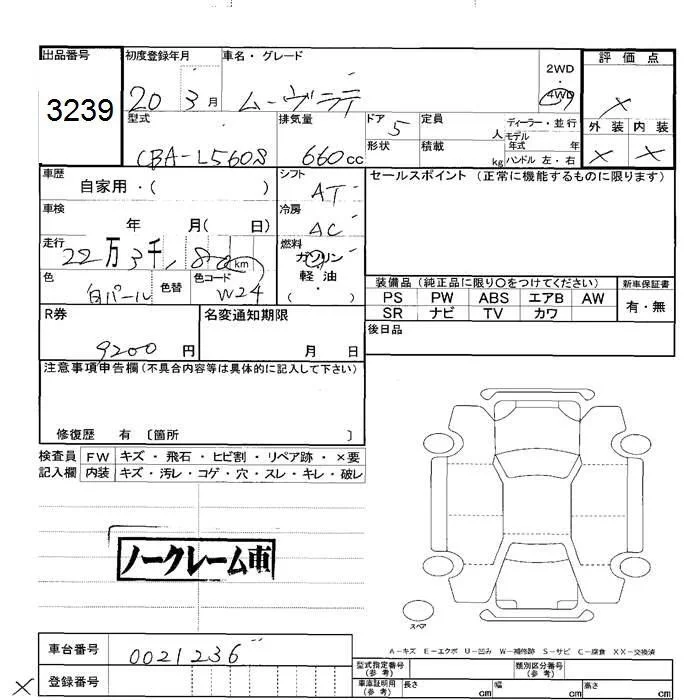 出品番号
3239
初度登録年月
20 3月
車名・グレード
ムーヴラテ
2WD
・
4WD
評価点
×
外装 内装
× ×
型式
CBA-L560S
排気量
660cc
ドア 5
形状
定員
人
積載
kg
ディーラー・並行
モデル
年式 年
ハンドル 左・右
車歴
自家用・( )
シフト
AT
車検
年 月( 日)
冷房
AC
走行
22万3千,
km
燃料
ガソリン
軽油
・
( )
色
白パール
色替
色コード
W24
セールスポイント (正常に機能するものに限ります)
装備品 (純正品に限り〇をつけてください)
PS PW ABS エアB AW
SR ナビ TV カワ
新車保証書
有・無
後日品
R券
9200円
名変通知期限
月 日
注意事項申告欄(不具合内容等は具体的に記入して下さい)
修復歴 有 〔箇所 〕
検査員
記入欄
FW キズ・飛石・ヒビ割・リペア跡・×要
内装 キズ・汚レ・コゲ・穴・スレ・キレ・破レ
ノークレーム車
スペア
A-キズ E-エクボ U-凹み W-補修跡 S-サビ C-腐食 XX-交換済
車台番号
0021236
× 登録番号
型式指定番号
(参考)
類別区分番号
(参考)
車庫証明用
(参考)
長さ cm
幅 cm
高さ cm